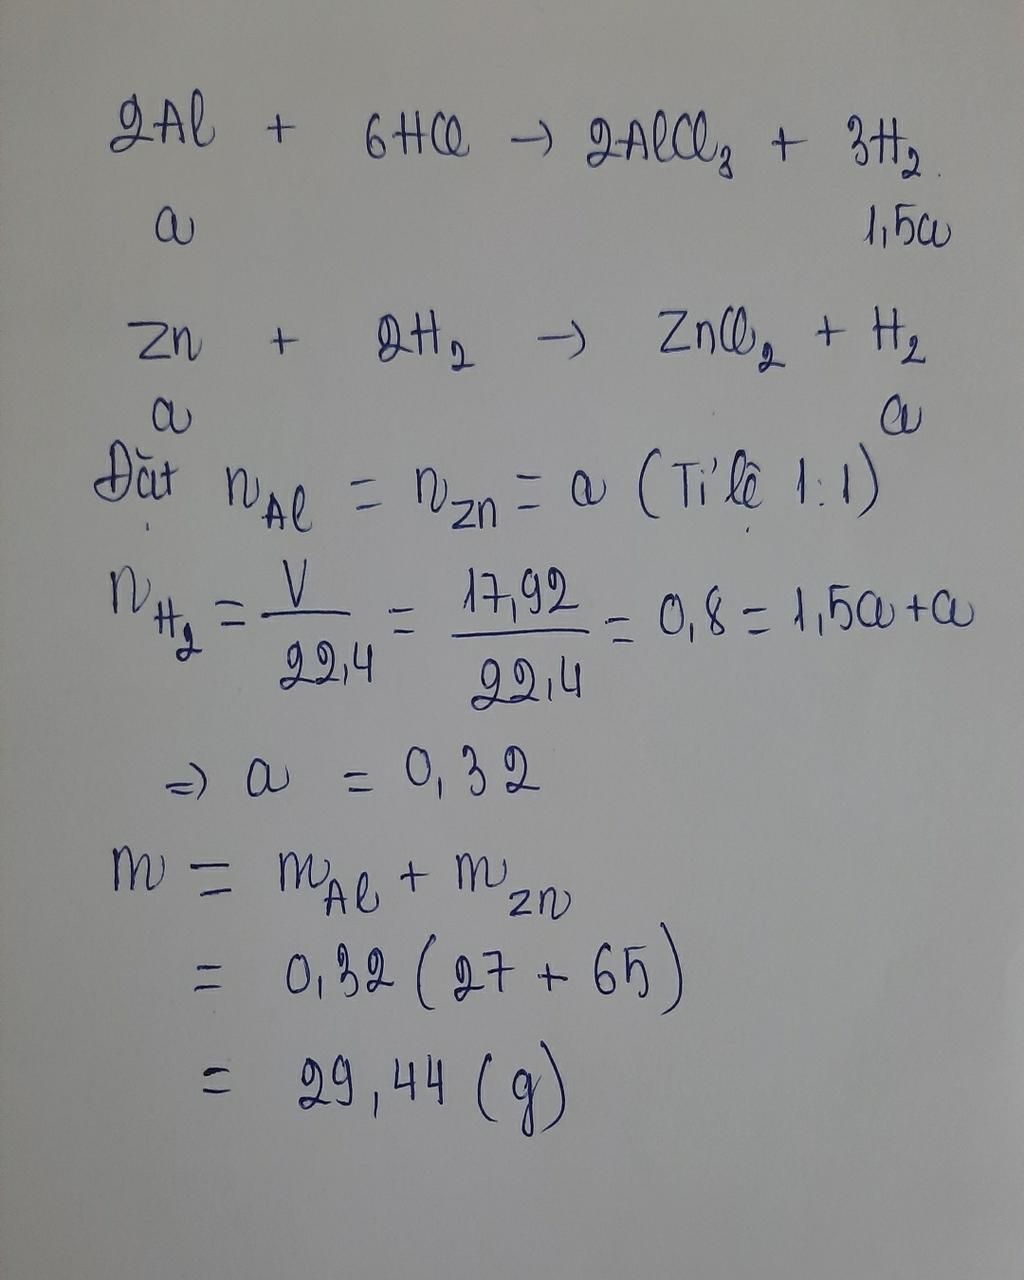 2Al + 6HCl → 2AlCl₃ + 3H₂
a 1,5a
Zn + 2H₂ → ZnCl₂ + H₂
a a
Đặt n_Al = n_Zn = a (Tỉ lệ 1:1)
n_H₂ = V/22,4 = 17,92/22,4 = 0,8 = 1,5a+a
=> a = 0,32
m = m_Al + m_Zn
= 0,32 (27 + 65)
= 29,44 (g)